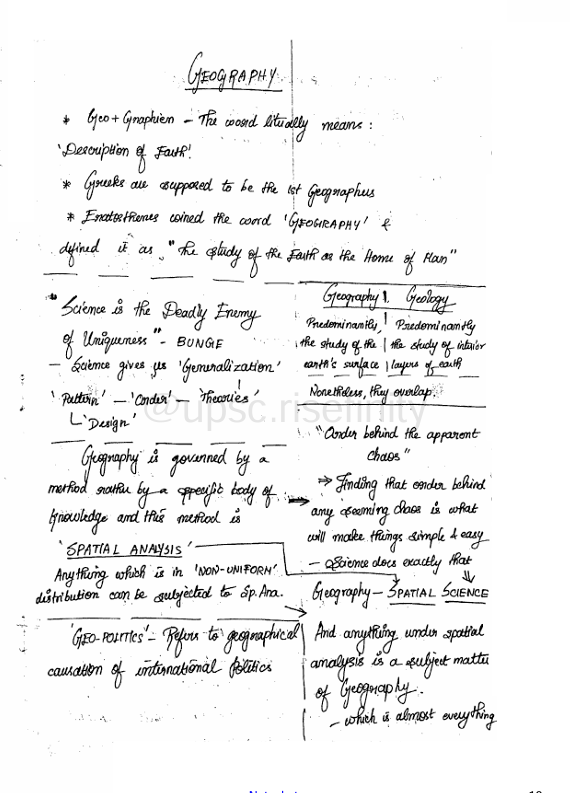 GEOGRAPHY
* Geo + Graphien - The word literally means:
'Description of Earth'.
* Greeks are supposed to be the 1st Geographers
* Eratosthenes coined the word 'GEOGRAPHY' &
defined it as, "The study of the Earth as the Home of Man"
"Science is the Deadly Enemy
of Uniqueness" - BUNGE
- Science gives us 'Generalization'
'Pattern' - 'Order' - 'Theories'
'Design'
Geography is governed by a
method rather by a specific body of
knowledge and this method is
'SPATIAL ANALYSIS'
Anything which is in 'NON-UNIFORM'
distribution can be subjected to Sp. Ana.
'GEO-POLITICS' - Refers to geographical
causation of international politics
Geography Geology
Predominantly, Predominantly
the study of the the study of interior
earth's surface layers of earth
Nonetheless, they overlap.
"Order behind the apparent
chaos"
⇒ Finding that order behind
any seeming chaos is what
will make things simple & easy
- Science does exactly that
Geography - SPATIAL SCIENCE
And anything under spatial
analysis is a subject matter
of Geography.
- which is almost everything
@upsc.risefinity